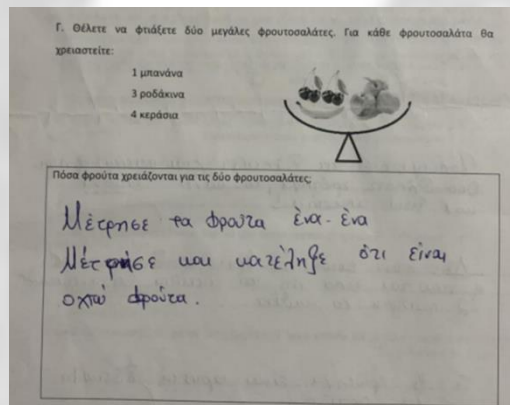 Γ. Θέλετε να φτιάξετε δύο μεγάλες φρουτοσαλάτες. Για κάθε φρουτοσαλάτα θα
χρειαστείτε:
1 μπανάνα
3 ροδάκινα
4 κεράσια
Πόσα φρούτα χρειάζονται για τις δύο φρουτοσαλάτες;
Μέτρησε τα φρούτα ένα-ένα
Μέτρησε και κατέληξε ότι είναι
οχτώ φρούτα.